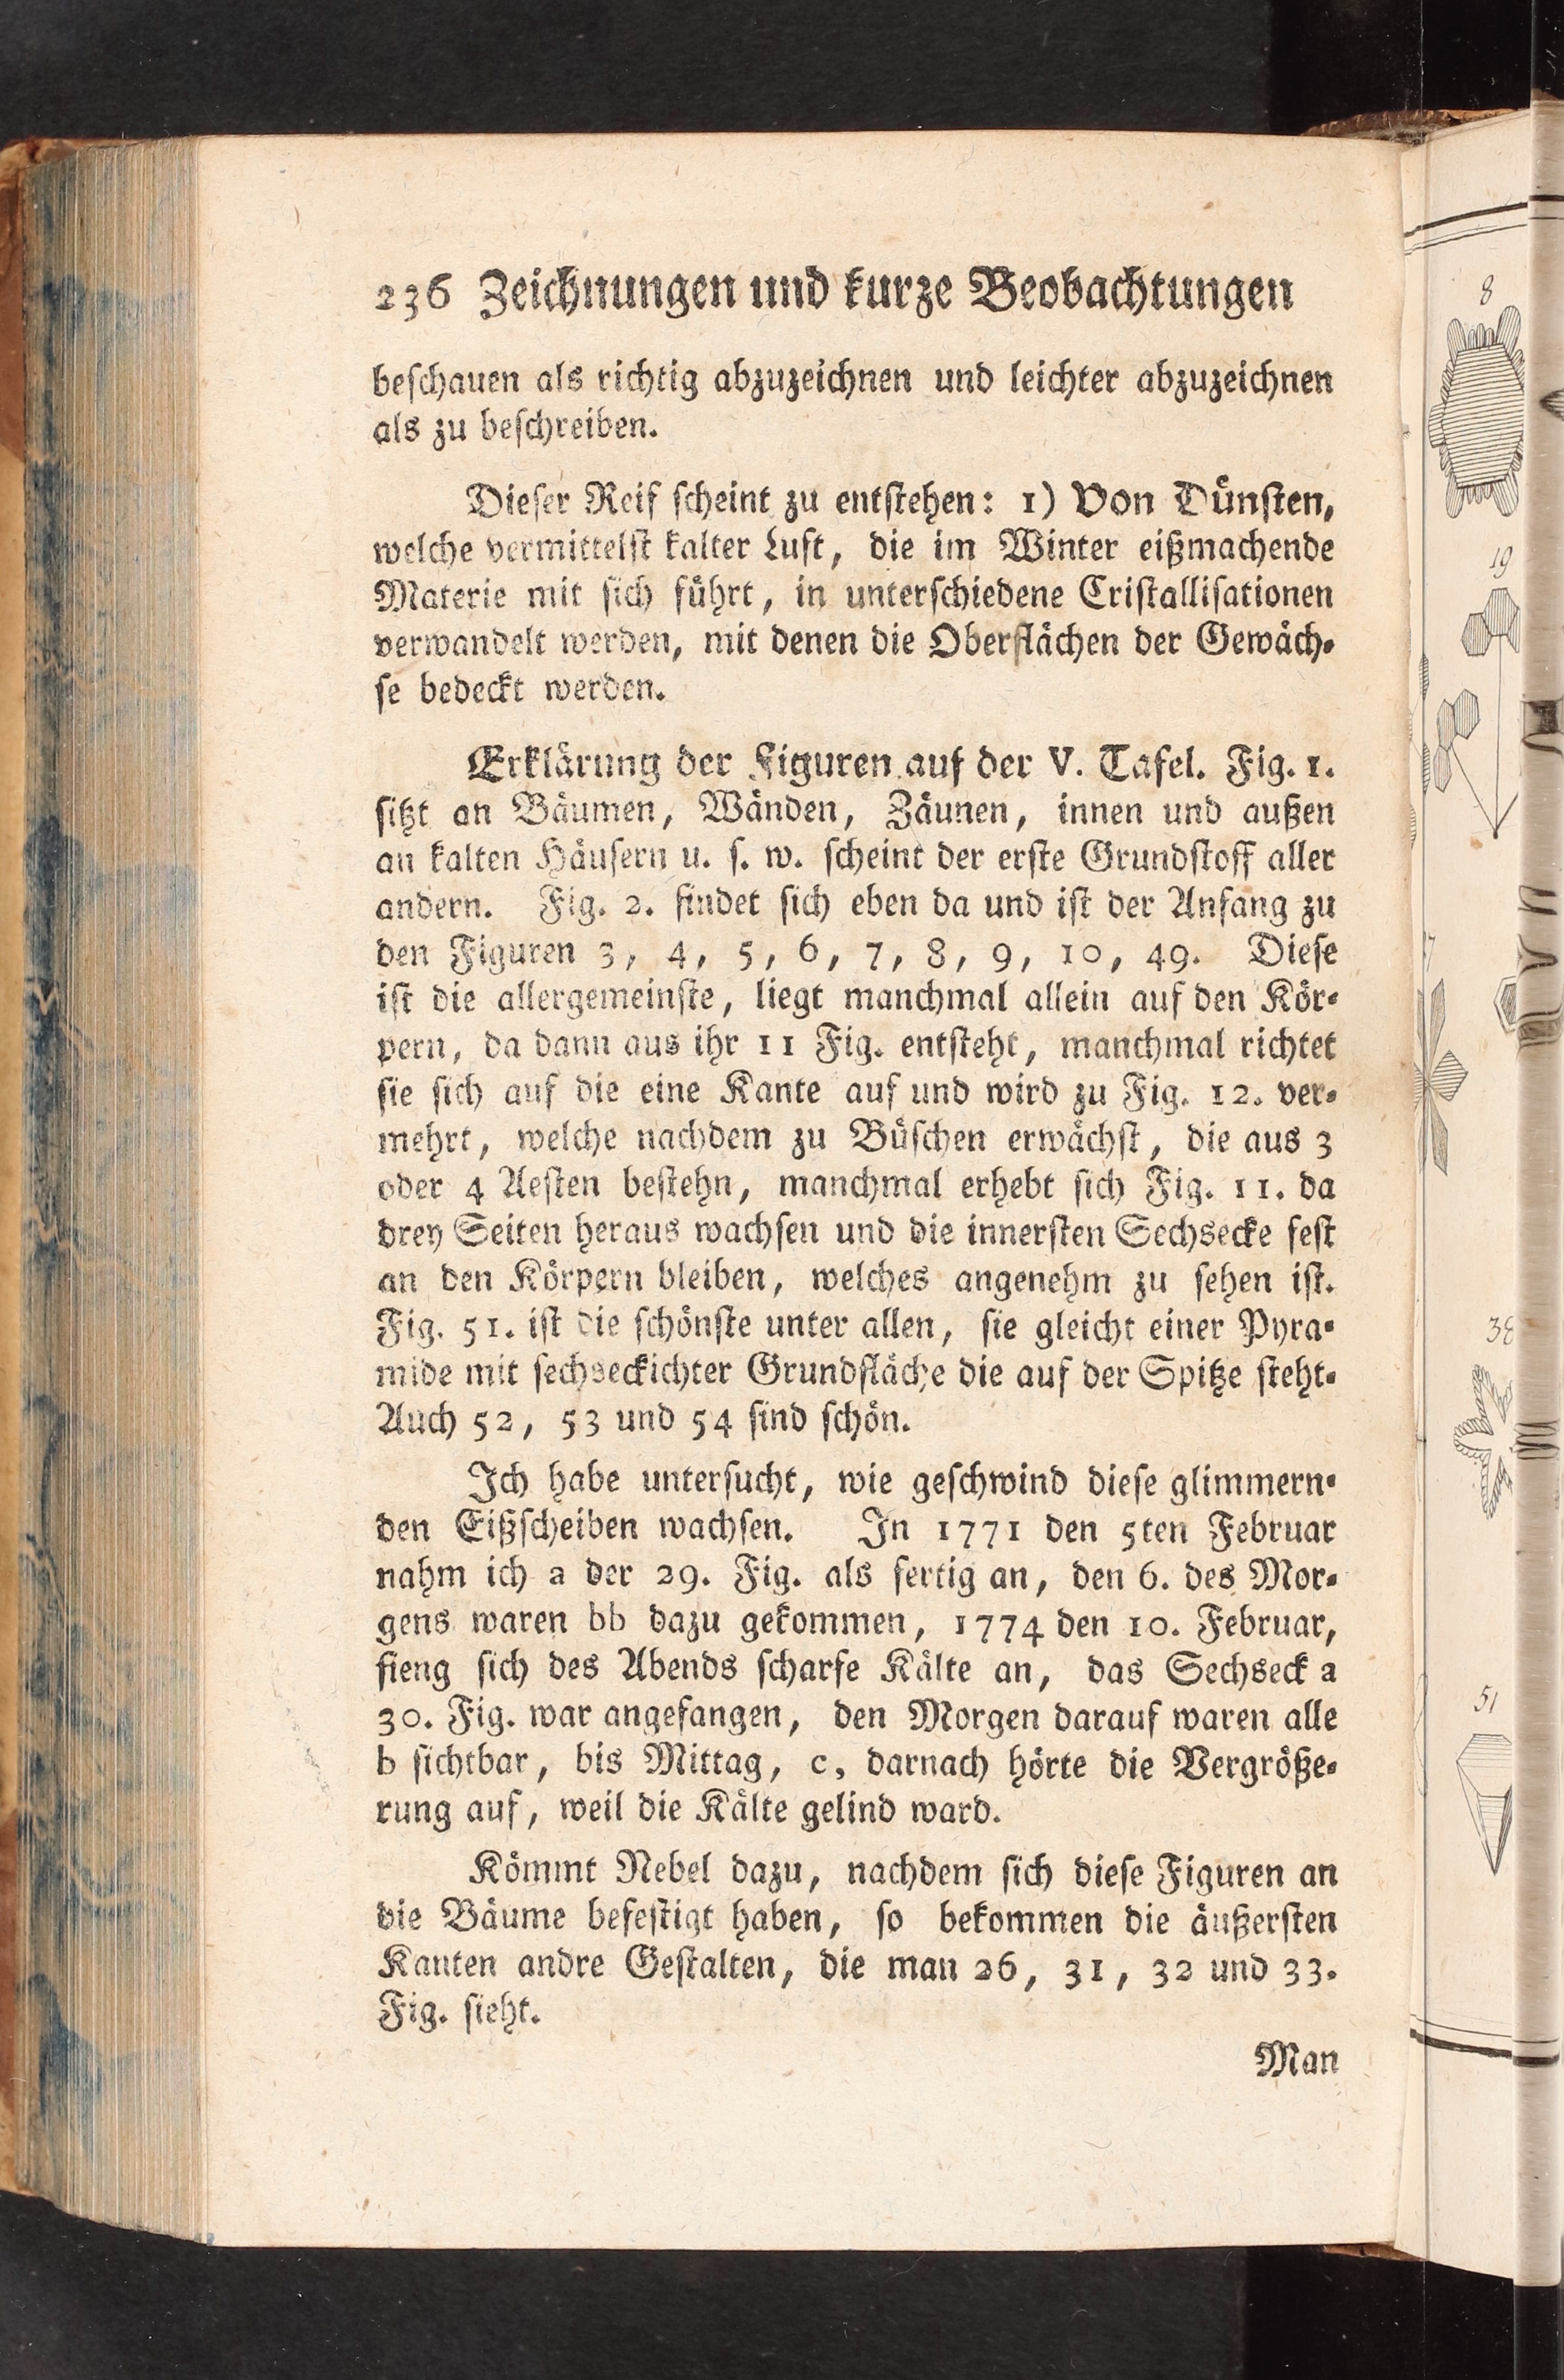 236 Zeichnungen und kurze Beobachtungen
beſchauen als richtig abzuzeichnen und leichter abzuzeichnen
als zu beſchreiben.
Dieſer Reif ſcheint zu entſtehen: 1) Von Dünſten,
welche vermittelſt kalter Luft, die im Winter eißmachende
Materie mit ſich führt, in unterſchiedene Criſtalliſationen
verwandelt werden, mit denen die Oberflächen der Gewäch⸗
ſe bedeckt werden.
Erklärung der Figuren auf der V. Tafel. Fig. 1.
ſitzt an Bäumen, Wänden, Zäunen, innen und außen
an kalten Häuſern u. ſ. w. ſcheint der erſte Grundſtoff aller
andern. Fig. 2. findet ſich eben da und iſt der Anfang zu
den Figuren 3, 4, 5, 6, 7, 8, 9, 10, 49. Dieſe
iſt die allergemeinſte, liegt manchmal allein auf den Kör⸗
pern, da dann aus ihr 11 Fig. entſteht, manchmal richtet
ſie ſich auf die eine Kante auf und wird zu Fig. 12. ver⸗
mehrt, welche nachdem zu Büſchen erwächſt, die aus 3
oder 4 Aeſten beſtehn, manchmal erhebt ſich Fig. 11. da
drey Seiten heraus wachſen und die innerſten Sechsecke feſt
an den Körpern bleiben, welches angenehm zu ſehen iſt.
Fig. 51. iſt die ſchönſte unter allen, ſie gleicht einer Pyra⸗
mide mit ſechseckichter Grundfläche die auf der Spitze ſteht⸗
Auch 52, 53 und 54 ſind ſchön.
Ich habe unterſucht, wie geſchwind dieſe glimmern⸗
den Eißſcheiben wachſen. In 1771 den 5ten Februar
nahm ich a der 29. Fig. als fertig an, den 6. des Mor⸗
gens waren bb dazu gekommen, 1774 den 10. Februar,
fieng ſich des Abends ſcharfe Kälte an, das Sechseck a
30. Fig. war angefangen, den Morgen darauf waren alle
b ſichtbar, bis Mittag, c, darnach hörte die Vergröße⸗
rung auf, weil die Kälte gelind ward.
Kömmt Nebel dazu, nachdem ſich dieſe Figuren an
die Bäume befeſtigt haben, ſo bekommen die äußerſten
Kanten andre Geſtalten, die man 26, 31, 32 und 33.
Fig. ſieht.
Man
8
19
7
38
51